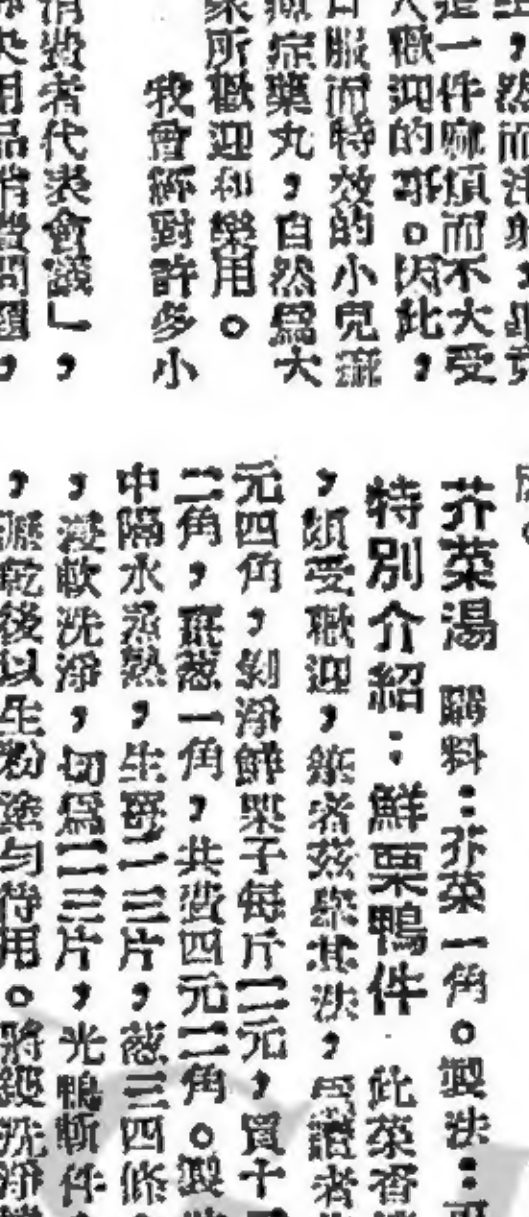 ，然而
是一件麻煩而不大受
人歡迎的事。因此，
服而特效的小兒疳
症藥丸，自然為大
家所歡迎和樂用。
我曾經對許多小
消費者代表會議」，
用品消費問題，
芥菜湯 購料：芥菜一角。製法：
特別介紹：鮮栗鴨件 此菜香
，頗受歡迎，編者茲將其法，為讀者
元四角，剝淨鮮栗子每斤二元，買十
二角，薑葱一角，共費四元二角。製
中隔水蒸熟，生薑二三片，葱三四條
，浸軟洗淨，切為二三片，光鴨斬件
，瀝乾後以生粉塗勻待用。將鑊洗淨